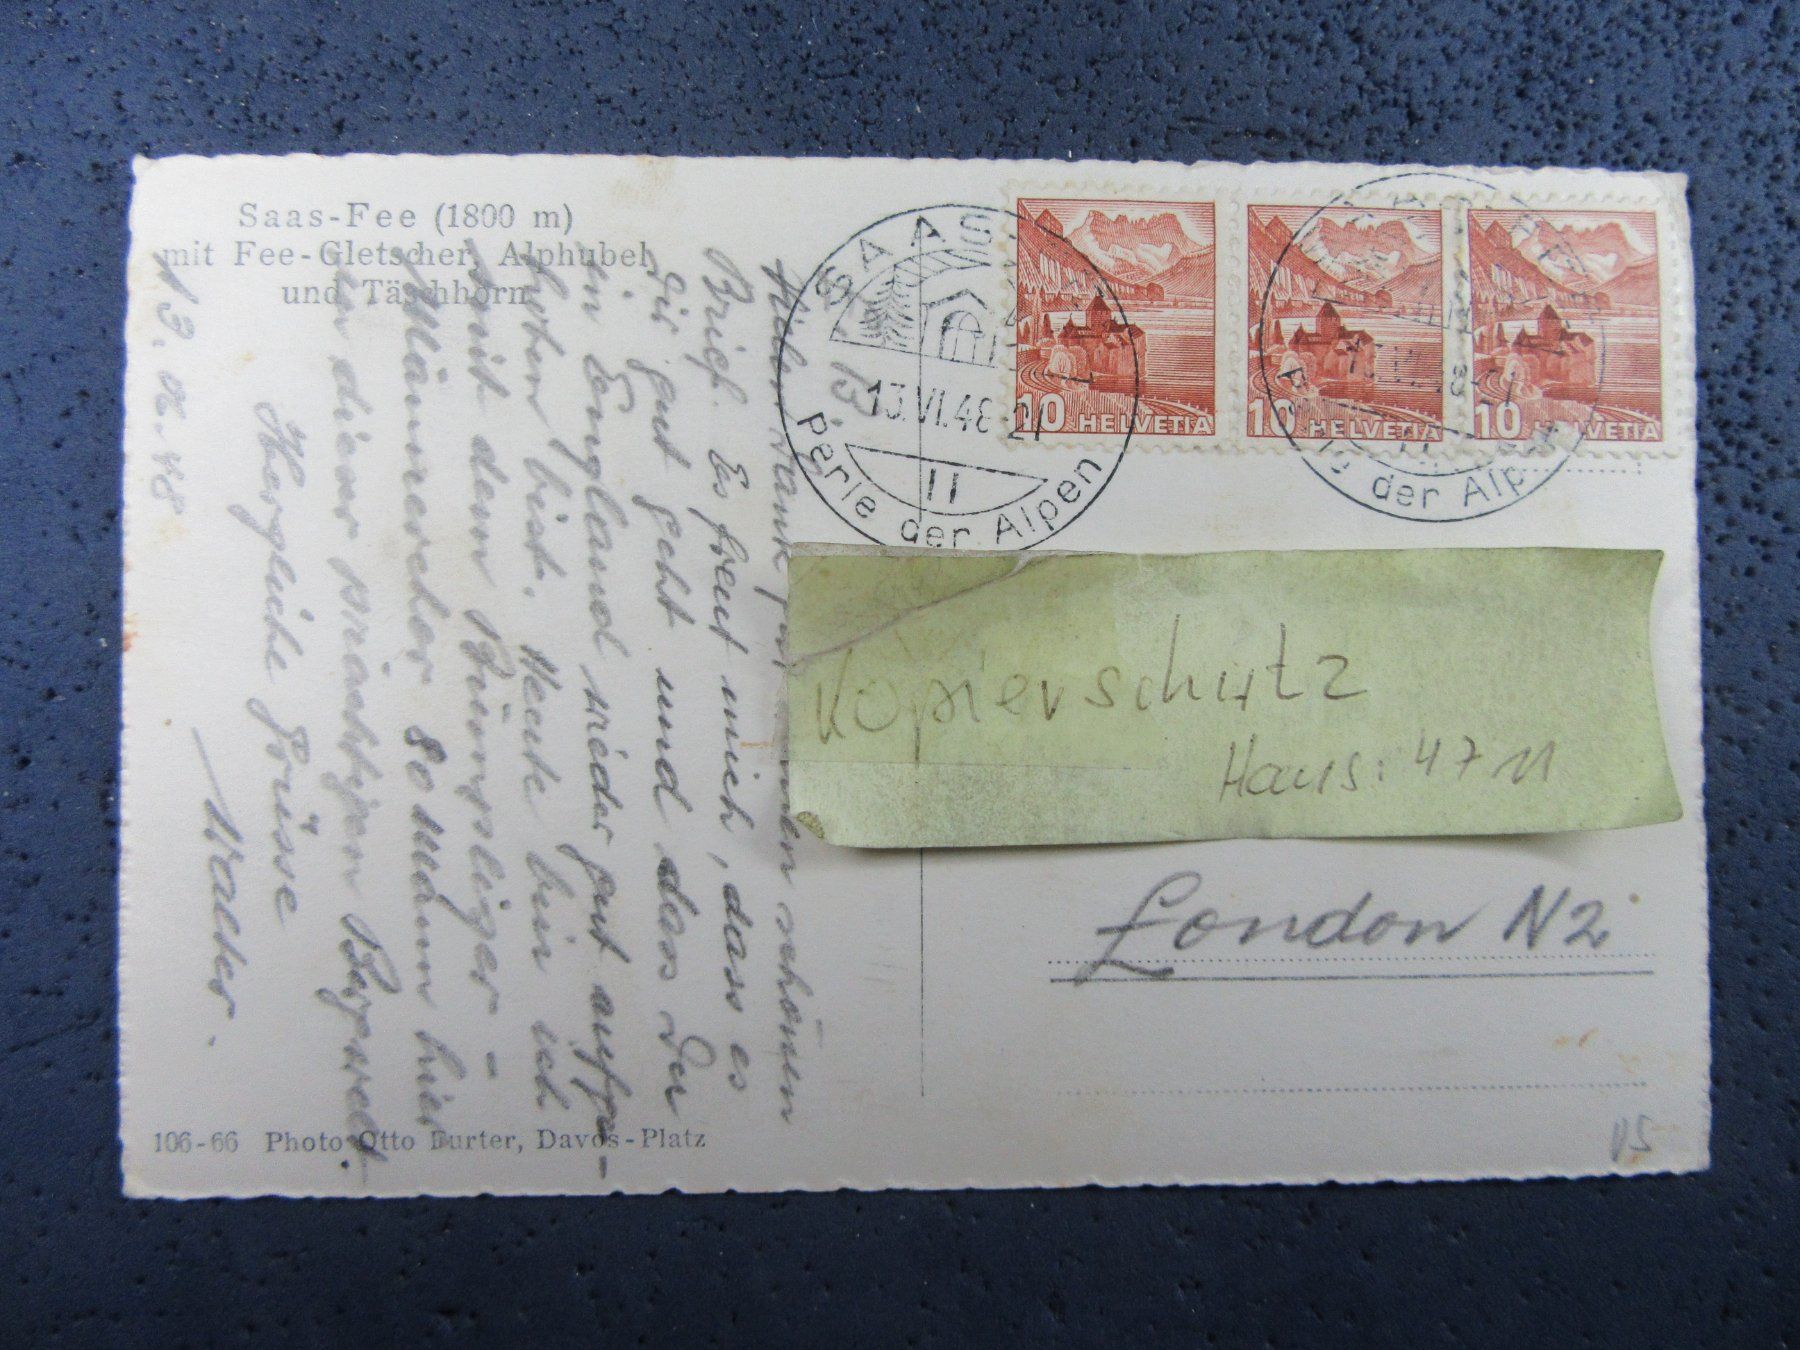 Saas-Fee (1800 m)
mit Fee-Gletscher, Alphubel
und Täschhorn
Vielen Dank für schönen
Brief. Es freut mich, dass es
Dir gut geht und dass Du
in England wieder gut aufge-
hoben bist. Heute bin ich
mit dem
Männerchor 80 Mann hier
in dieser prächtigen Bergwelt.
Herzliche Grüsse
Walter.
13. VI. 48
106-66 Photo Otto Furter, Davos-Platz
SAAS-FEE
13.VI.48-21
11
Perle der Alpen
10 HELVETIA
10 HELVETIA
10 HELVETIA
Perle der Alpen
Kopierschutz
Hans: 4711
London N2
15